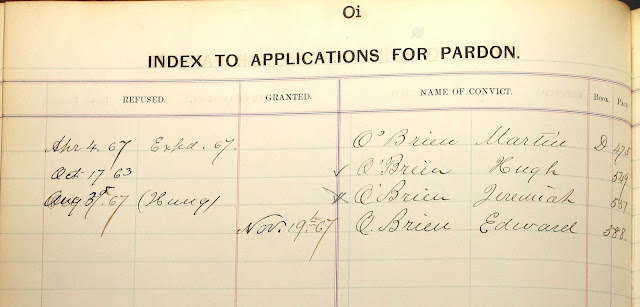 Oi
INDEX TO APPLICATIONS FOR PARDON.
REFUSED. GRANTED. NAME OF CONVICT. Book. Page
Apr 4. 67 Expd. 67. O'Brien Martin D 475
Oct 17 63 O'Brien Hugh 549
Aug 31st. 67 (Hung) O'Brien Jeremiah 557
Nov. 19th 67 O.Brien Edward 588.